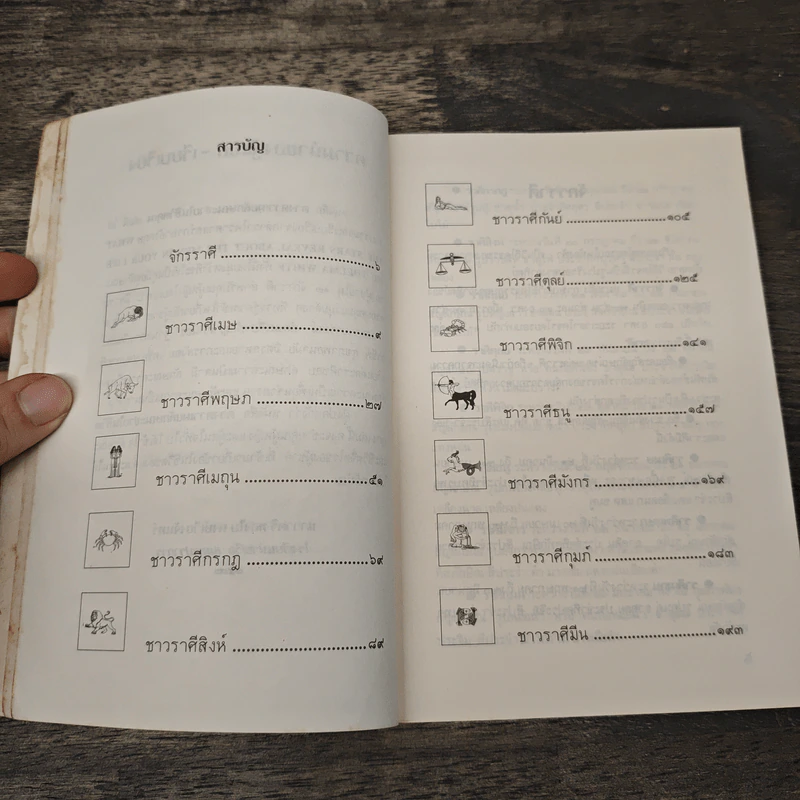 สารบัญ
จักรราศี ๖
ชาวราศีเมษ ๙
ชาวราศีพฤษภ ๒๗
ชาวราศีเมถุน ๕๑
ชาวราศีกรกฎ ๖๙
ชาวราศีสิงห์ ๘๙
ชาวราศีกันย์ ๑๐๕
ชาวราศีตุลย์ ๑๒๕
ชาวราศีพิจิก ๑๔๑
ชาวราศีธนู ๑๕๗
ชาวราศีมังกร ๑๖๙
ชาวราศีกุมภ์ ๑๘๓
ชาวราศีมีน ๑๙๓